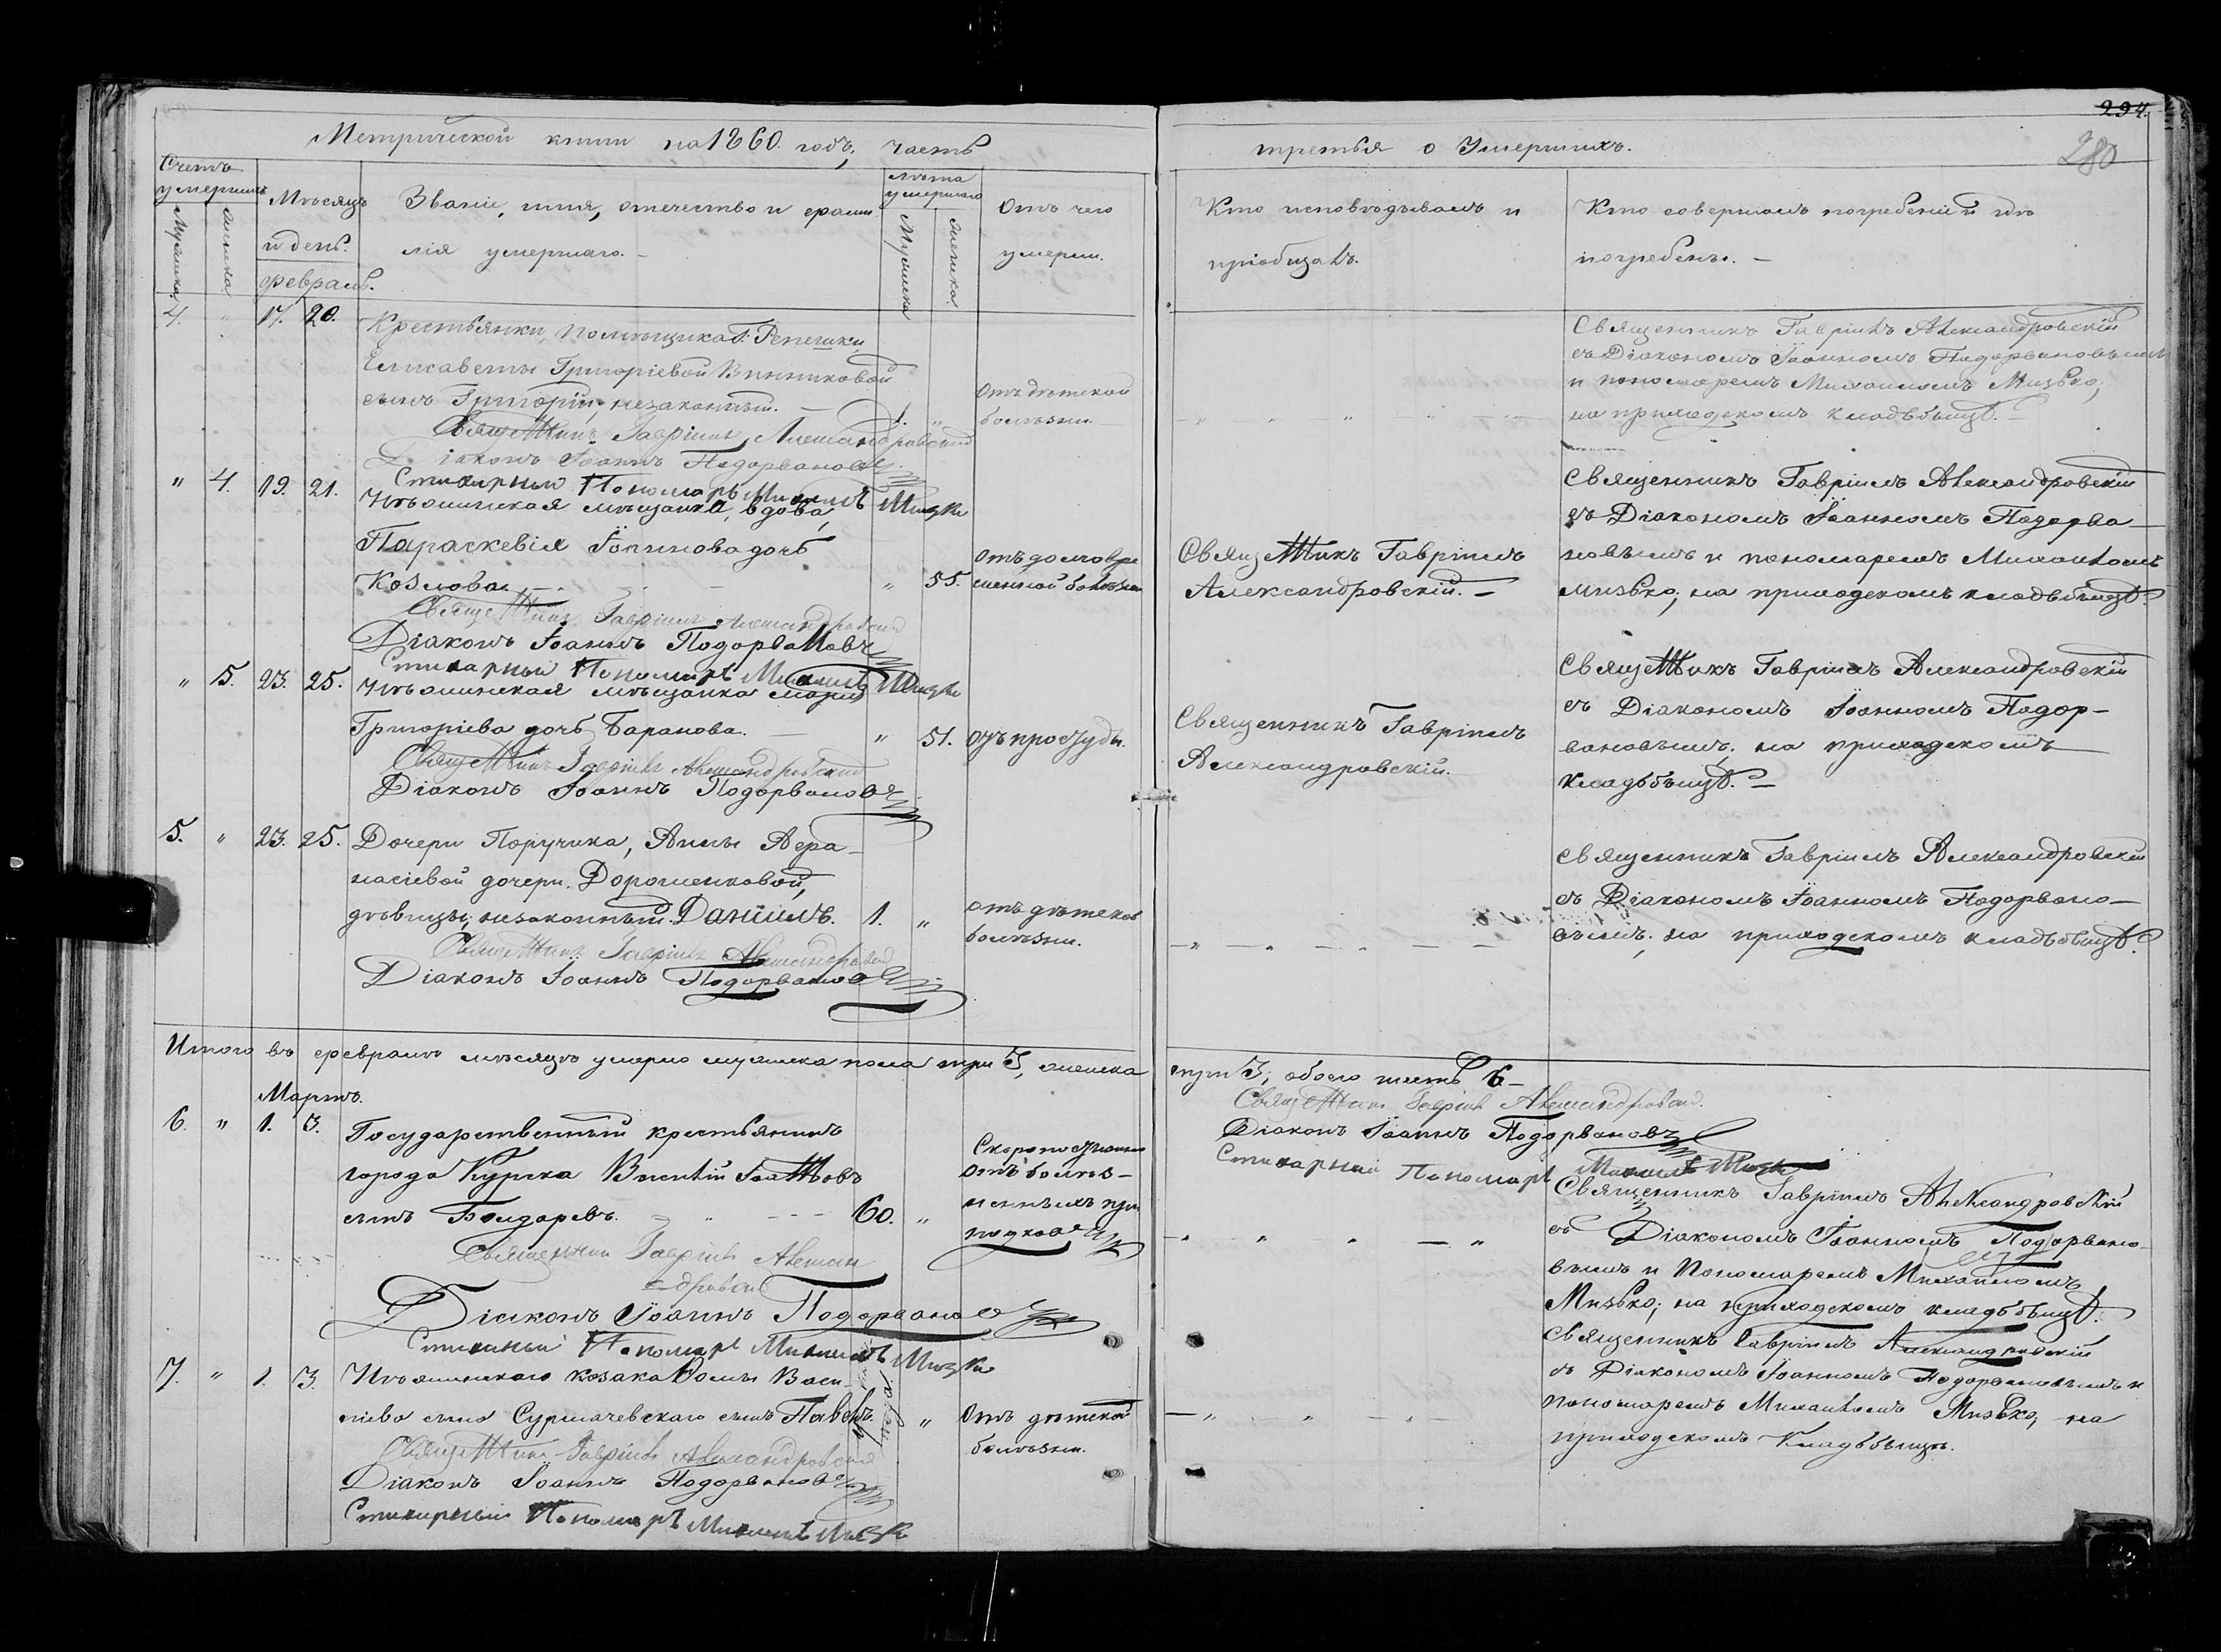 294.
280
Метрической книги на 1860. годъ, часть
третья о Умершихъ.
Счетъ умершихъ
Мужеска
Женска
Мѣсяцъ и день.
февраль.
Званіе, имя, отечество и фамилія умершаго.
лѣта умершаго
Мужеска
Женска
Отъ чего умерли.
Кто исповѣдывалъ и
пріобщалъ.
Кто совершалъ погребеніе и гдѣ
погребены.
4. " 17. 20.
Крестьянки, помѣщика
Елисаветы Григоріевой Винниковой
сынъ Григорій, незаконный. 1. "
отъ дѣтской
болѣзни.
Священникъ Гавріилъ Александровскій
съ Діакономъ Іоанномъ Подорвановымъ
и пономаремъ Михаиломъ Мизько;
на приходскомъ кладбищѣ.
Священникъ Гавріилъ Александровскій
Діаконъ Іоаннъ Подорвановъ
Стихарный Пономарь Михаилъ Мизько
" 4. 19. 21.
Нѣжинская мѣщанка, вдова,
Параскевія дочь
Козлова " 55.
отъ долговре
менной болѣзни
Священникъ Гавріилъ
Александровскій.
Священникъ Гавріилъ Александровскій
съ Діакономъ Іоанномъ Подорва
новымъ и пономаремъ Михаиломъ
Мизько; на приходскомъ кладбищѣ.
Священникъ Гавріилъ Александровскій
Діаконъ Іоаннъ Подорвановъ
Стихарный Пономарь Михаилъ Мизько
" 5. 23. 25.
Нѣжинская мѣщанка Марія
Григоріева дочь Баранова. " 51.
отъ простуды.
Священникъ Гавріилъ
Александровскій.
Священникъ Гавріилъ Александровскій
съ Діакономъ Іоанномъ Подор-
вановымъ; на приходскомъ
кладбищѣ.
Священникъ Гавріилъ Александровскій
Діаконъ Іоаннъ Подорвановъ
5. " 23. 25.
Дочери Поручика, Анны Афа-
насіевой дочери Дорошенковой,
дѣвицы, незаконный Даніилъ. 1. "
отъ дѣтской
болѣзни.
Священникъ Гавріилъ Александровскій
съ Діакономъ Іоанномъ Подорвано-
вымъ; на приходскомъ кладбищѣ.
Священникъ Гавріилъ Александровскій
Діаконъ Іоаннъ Подорвановъ
Итого въ февралѣ мѣсяцѣ умерло мужеска пола три 3, женска
три 3; обоего шесть 6
Священникъ Гавріилъ Александровскій.
Діаконъ Іоаннъ Подорвановъ
Стихарный Пономарь Михаилъ Мизько
Мартъ.
6. " 1. 3.
Государственный крестьянинъ
города Курска Василій
сынъ Бондаревъ. 60. "
Скоропостижно
отъ болѣз-
ненныхъ при
падковъ
Священникъ Гавріилъ Александровскій
съ Діакономъ Іоанномъ Подорвано-
вымъ и Пономаремъ Михаиломъ
Мизько; на приходскомъ кладбищѣ.
Священникъ Гавріилъ Алексан
дровскій
Діаконъ Іоаннъ Подорвановъ
Стихарный Пономарь Михаилъ Мизько
7. " 1. 3.
Нѣжинскаго козака Фомы Васи-
ліева сына Сурмачевскаго сынъ Павелъ. "
Отъ дѣтской
болѣзни.
Священникъ Гавріилъ Александровскій
съ Діакономъ Іоанномъ Подорвановымъ и
пономаремъ Михаиломъ Мизько; на
приходскомъ кладбищѣ.
Священникъ Гавріилъ Александровскій
Діаконъ Іоаннъ Подорвановъ
Стихарный Пономарь Михаилъ Мизько